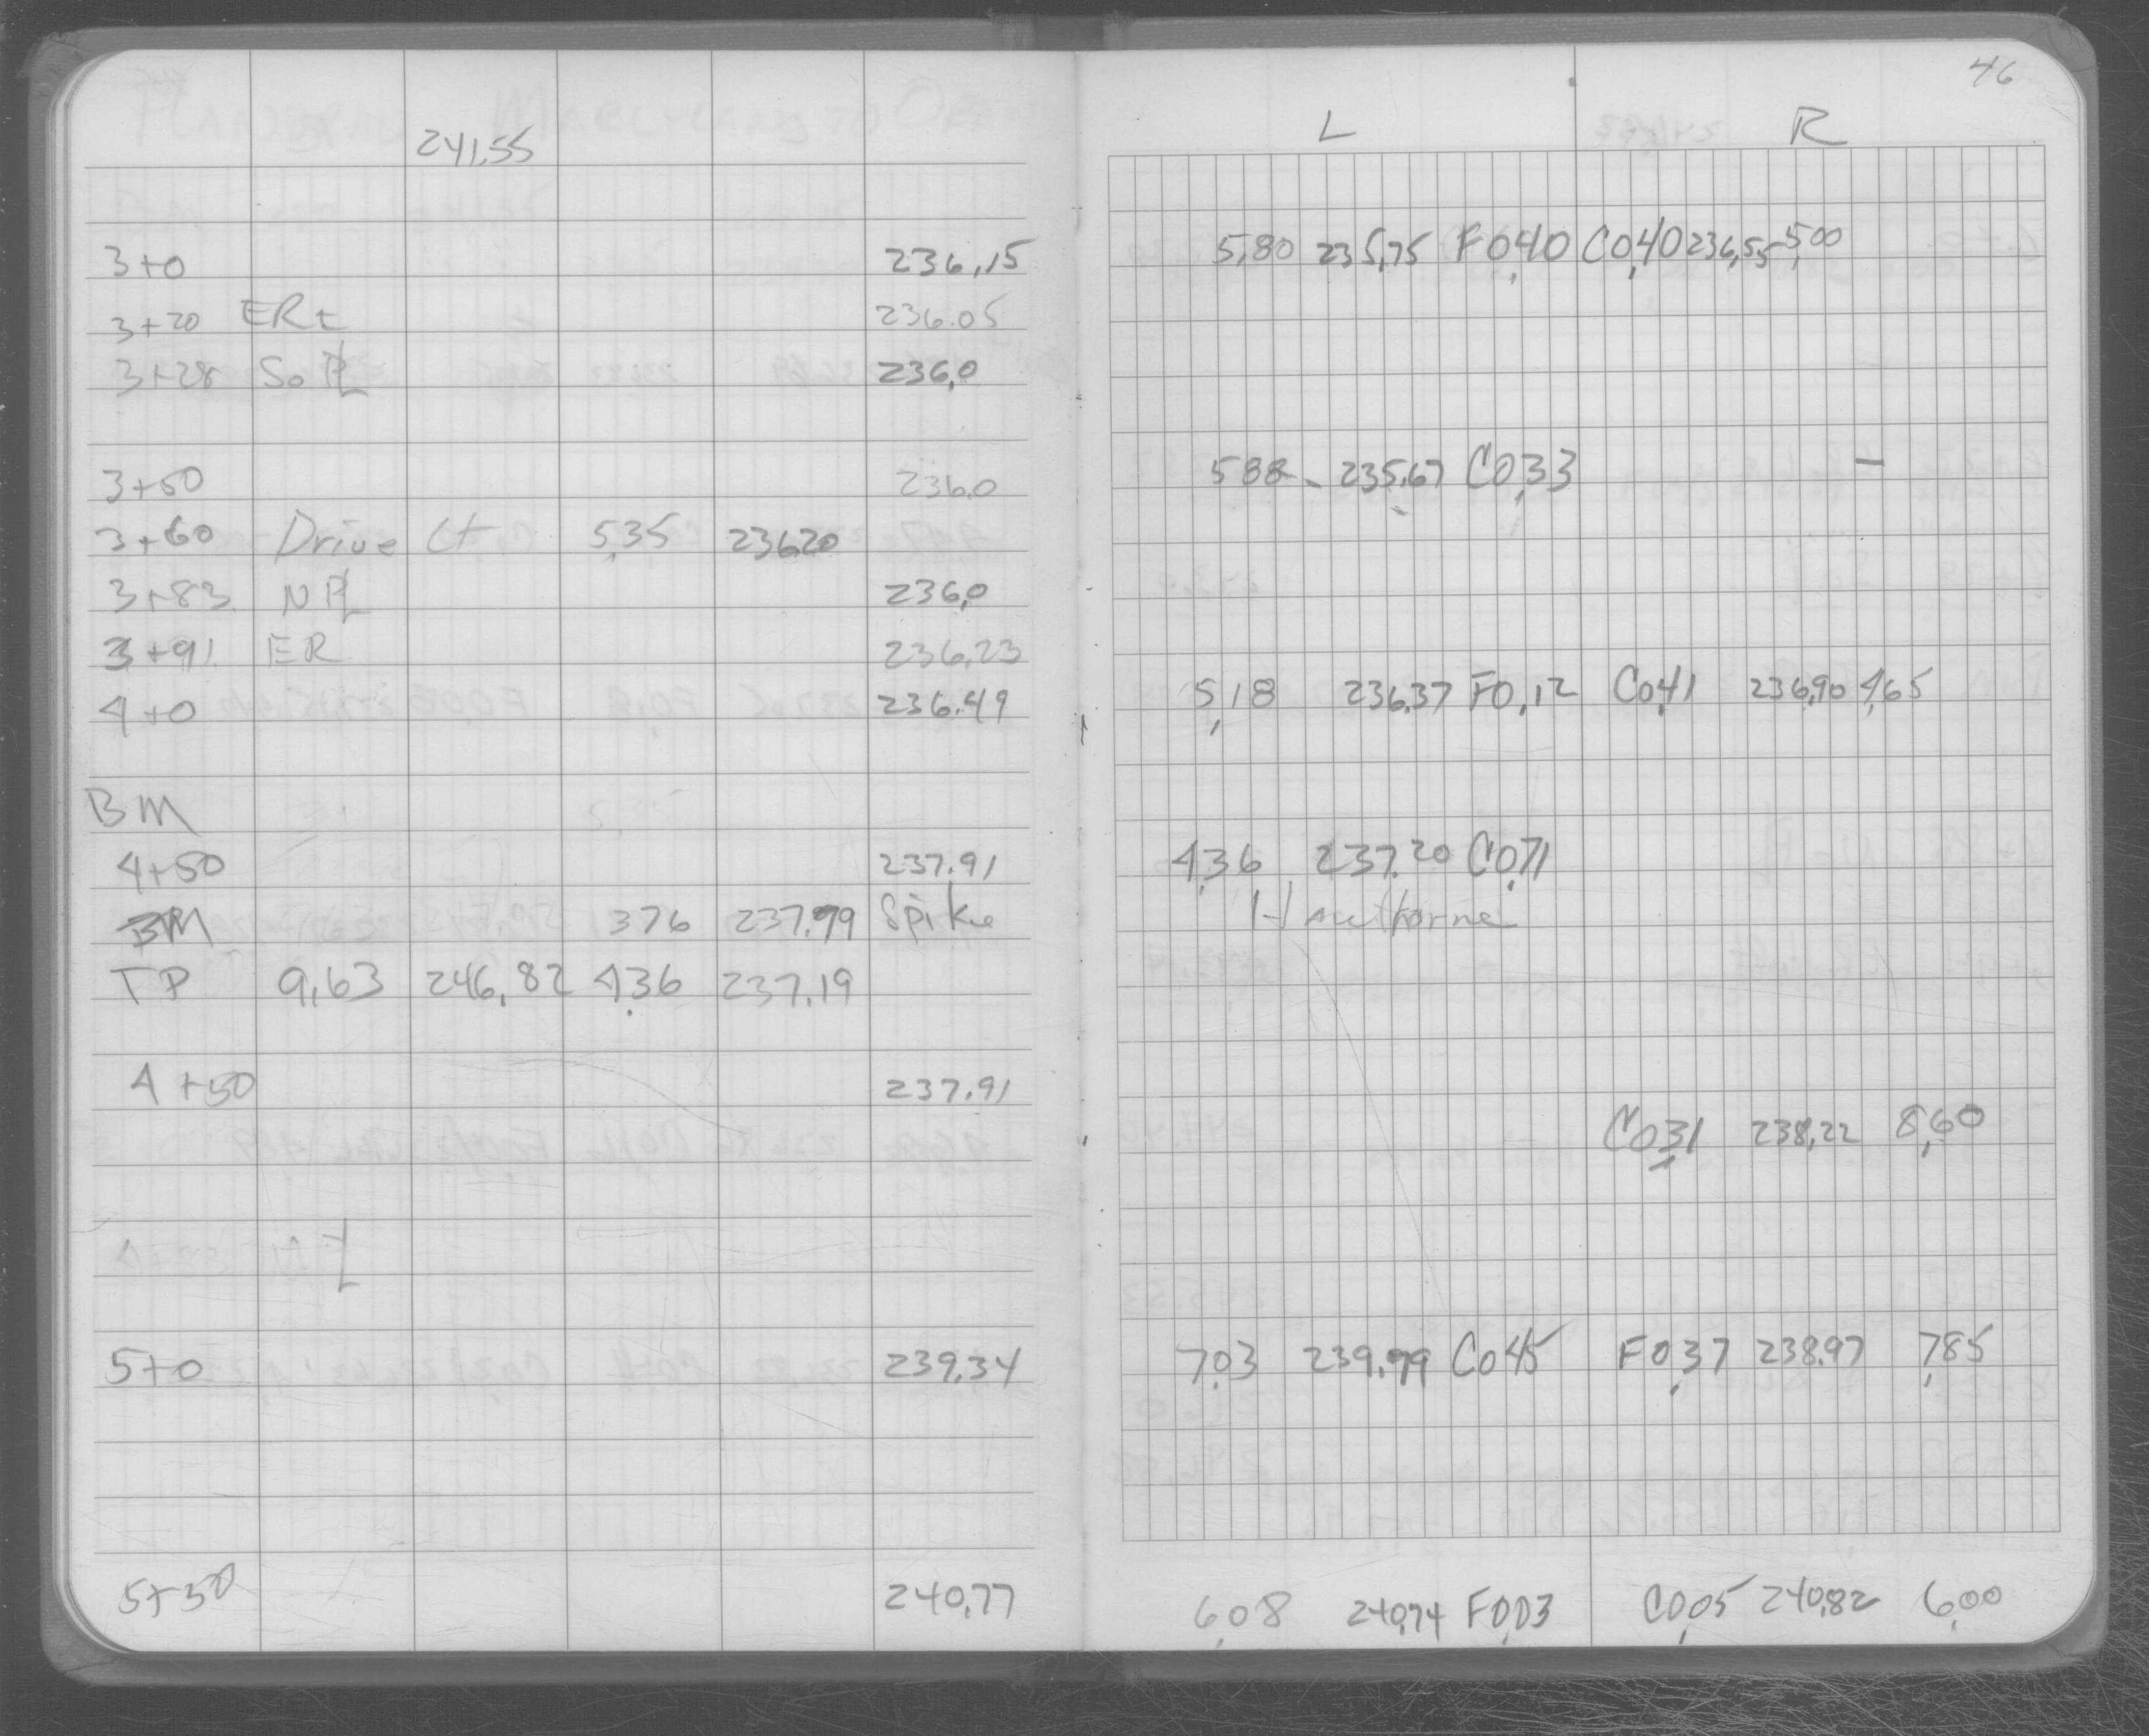 46
L R
241.55
3+0 236.15 5.80 235.75 F0.40 C0.40 236.55 5.00
3+20 ERt 236.05
3+28 So PL 236.0
3+50 236.0 588 - 235.67 C0.33 -
3+60 Drive Lt 5.35 236.20
3+83 N PL 236.0
3+91 ER 236.23
4+0 236.49 5.18 236.37 F0.12 C0.41 236.90 4.65
BM
4+50 237.91 4.36 237.20 C0.71
BM 376 237.79 Spike Hawthorne
TP 9.63 246.82 4.36 237.19
4+50 237.91
C0.31 238.22 8.60
5+0 239.34 7.03 239.79 C0.45 F0.37 238.97 7.85
5+50 240.77 6.08 240.74 F0.03 C0.05 240.82 6.00